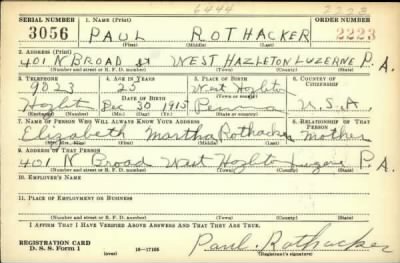 6444 2223
SERIAL NUMBER 1. NAME (Print) ORDER NUMBER
3056 PAUL ROTHACKER 2223
(First) (Middle) (Last)
2. ADDRESS (Print)
401 N BROAD St WEST HAZLETON LUZERNE P.A.
(Number and street or R. F. D. number) (Town) (County) (State)
3. TELEPHONE 4. AGE IN YEARS 5. PLACE OF BIRTH 6. COUNTRY OF CITIZENSHIP
9023 25 West Hazltn
DATE OF BIRTH (Town or county)
Hazlt Dec 30 1915 Penna U.S.A.
(Exchange) (Number) (Mo.) (Day) (Yr.) (State or country)
7. NAME OF PERSON WHO WILL ALWAYS KNOW YOUR ADDRESS 8. RELATIONSHIP OF THAT PERSON
Elizabeth Martha Rothacker mother
(Mr., Mrs., Miss) (First) (Middle) (Last)
9. ADDRESS OF THAT PERSON
401 N Broad West Hazltn Luzerne P.A.
(Number and street or R. F. D. number) (Town) (County) (State)
10. EMPLOYER'S NAME
11. PLACE OF EMPLOYMENT OR BUSINESS
(Number and street or R. F. D. number) (Town) (County) (State)
I AFFIRM THAT I HAVE VERIFIED ABOVE ANSWERS AND THAT THEY ARE TRUE.
REGISTRATION CARD
D. S. S. Form 1 (over) 16—17105 Paul Rothacker
(Registrant's signature)